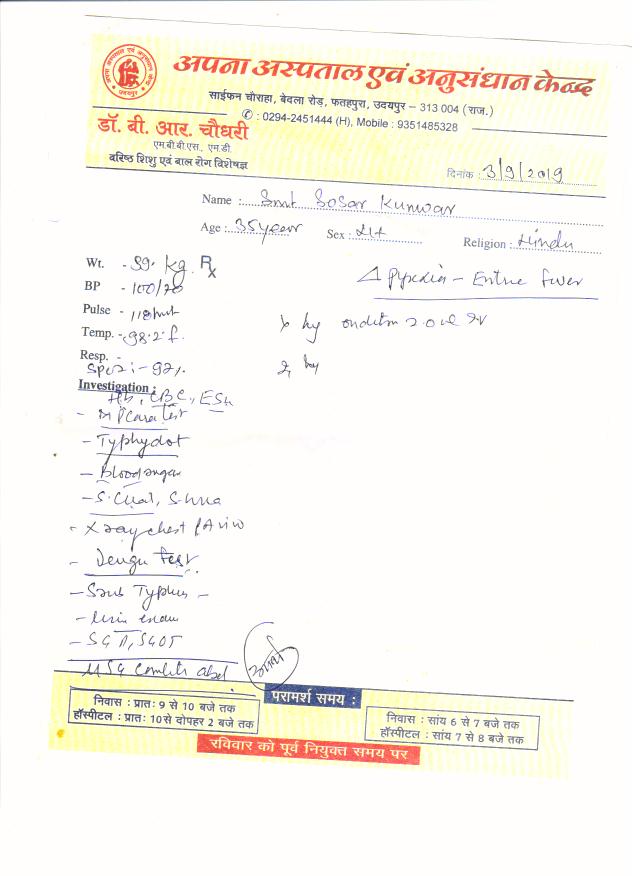 अपना अस्पताल एवं अनुसंधान केन्द्र
साईफन चौराहा, बेदला रोड़, फतहपुरा, उदयपुर – 313 004 (राज.)
✆ : 0294-2451444 (H), Mobile : 9351485328
डॉ. बी. आर. चौधरी
एम.बी.बी.एस., एम.डी.
वरिष्ठ शिशु एवं बाल रोग विशेषज्ञ
दिनांक : 3/9/2019
Name : Smt Sosar Kunwar
Age : 35 year Sex : Religion : Hindu
Wt. - 59. kg. Rx
BP - 100/70
Pulse - 118/mt
Temp. - 98.2 f.
Resp. -
SPO2 :- 92%
△ Pyrexia - fever
1, Inj
2, Inj
Investigation :
Hb, CBC, ESR
- MP Card test
- Typhydot
- Blood sugar
- S. Creat, S. Urea
- X ray chest PA view
- Dengu Test.
- Scrub Typhus -
- Urin exam
- SGPT, SGOT
USG abd
परामर्श समय :
निवास : प्रातः 9 से 10 बजे तक
हॉस्पीटल : प्रातः 10 से दोपहर 2 बजे तक
निवास : सांय 6 से 7 बजे तक
हॉस्पीटल : सांय 7 से 8 बजे तक
रविवार को पूर्व नियुक्त समय पर